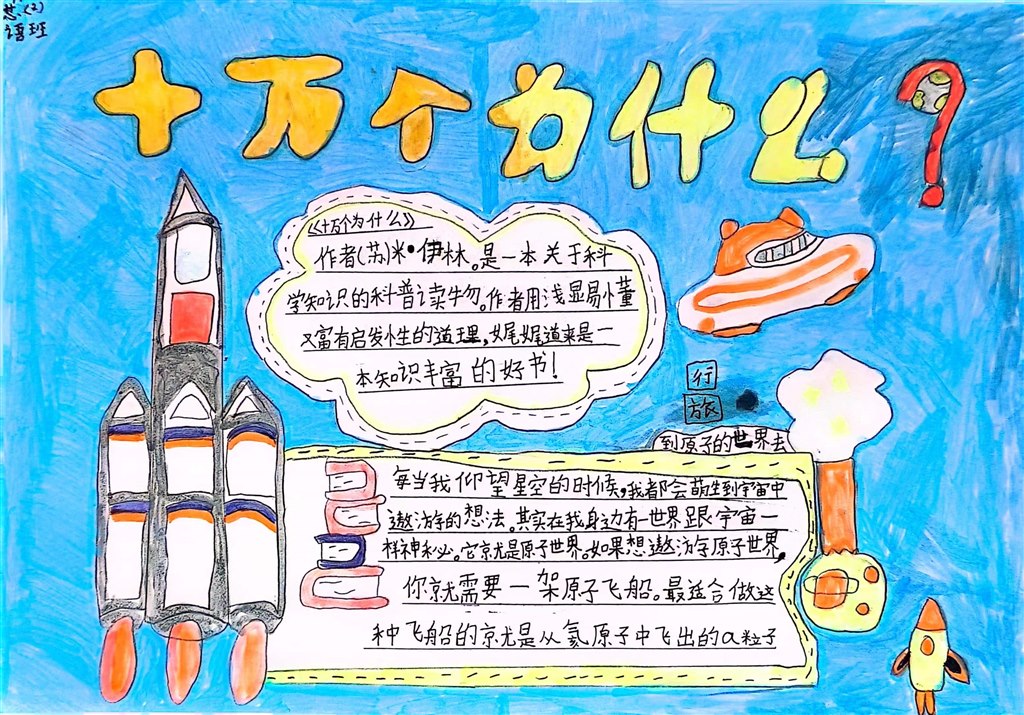 慧(2)
语班
十万个为什么?
《十万个为什么》
作者(苏)米·伊林。是一本关于科
学知识的科普读物。作者用浅显易懂
又富有启发性的道理,娓娓道来是一
本知识丰富的好书!
行
旅
到原子的世界去
每当我仰望星空的时候,我都会萌生到宇宙中
遨游的想法。其实在我身边有一世界跟宇宙一
样神秘。它就是原子世界。如果想遨游原子世界,
你就需要一架原子飞船。最适合做这
种飞船的就是从氦原子中飞出的α粒子